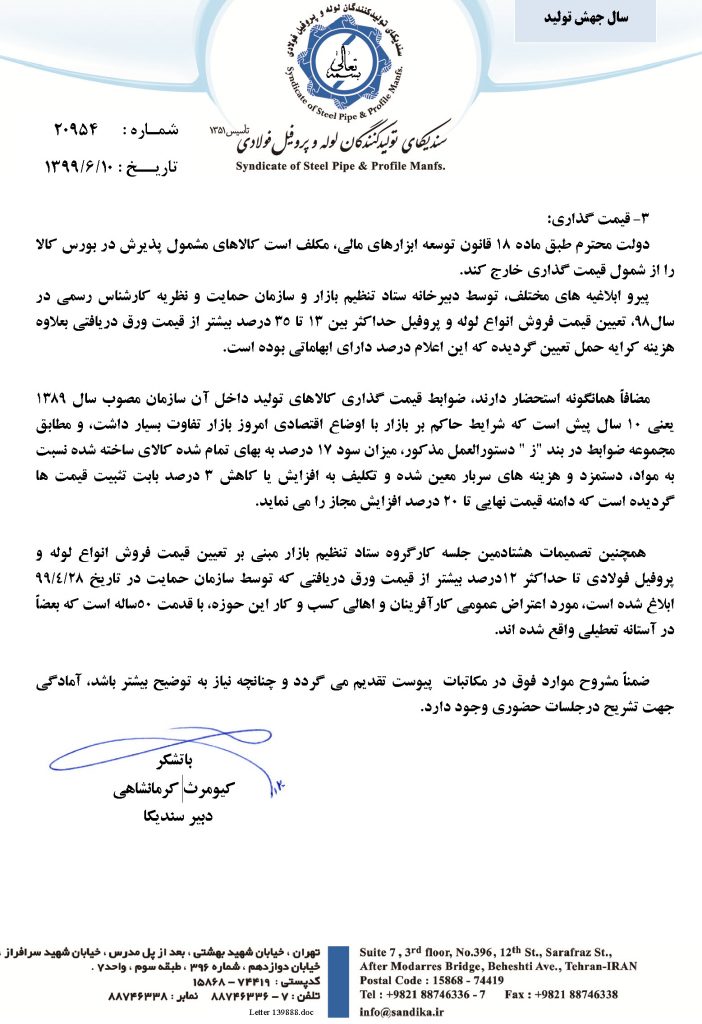 سال جهش تولید
سندیکای تولیدکنندگان لوله و پروفیل فولادی
بسمه تعالی
Syndicate of Steel Pipe & Profile Manfs.
شماره : ۲۰۹۵۴
سندیکای تولیدکنندگان لوله و پروفیل فولادی تاسیس ۱۳۵۱
تاریخ : ۱۳۹۹/۶/۱۰
Syndicate of Steel Pipe & Profile Manfs.
۳- قیمت گذاری:
دولت محترم طبق ماده ۱۸ قانون توسعه ابزارهای مالی، مکلف است کالاهای مشمول پذیرش در بورس کالا
را از شمول قیمت گذاری خارج کند.
پیرو ابلاغیه های مختلف، توسط دبیرخانه ستاد تنظیم بازار و سازمان حمایت و نظریه کارشناس رسمی در
سال۹۸، تعیین قیمت فروش انواع لوله و پروفیل حداکثر بین ۱۳ تا ۳۵ درصد بیشتر از قیمت ورق دریافتی بعلاوه
هزینه کرایه حمل تعیین گردیده که این اعلام درصد دارای ابهاماتی بوده است.
مضافاً همانگونه استحضار دارند، ضوابط قیمت گذاری کالاهای تولید داخل آن سازمان مصوب سال ۱۳۸۹
یعنی ۱۰ سال پیش است که شرایط حاکم بر بازار با اوضاع اقتصادی امروز بازار تفاوت بسیار داشت، و مطابق
مجموعه ضوابط در بند "ز " دستورالعمل مذکور، میزان سود ۱۷ درصد به بهای تمام شده کالای ساخته شده نسبت
به مواد، دستمزد و هزینه های سربار معین شده و تکلیف به افزایش یا کاهش ۳ درصد بابت تثبیت قیمت ها
گردیده است که دامنه قیمت نهایی تا ۲۰ درصد افزایش مجاز را می نماید.
همچنین تصمیمات هشتادمین جلسه کارگروه ستاد تنظیم بازار مبنی بر تعیین قیمت فروش انواع لوله و
پروفیل فولادی تا حداکثر ۱۲درصد بیشتر از قیمت ورق دریافتی که توسط سازمان حمایت در تاریخ ۹۹/۴/۲۸
ابلاغ شده است، مورد اعتراض عمومی کارآفرینان و اهالی کسب و کار این حوزه، با قدمت ۵۰ساله است که بعضاً
در آستانه تعطیلی واقع شده اند.
ضمناً مشروح موارد فوق در مکاتبات پیوست تقدیم می گردد و چنانچه نیاز به توضیح بیشتر باشد، آمادگی
جهت تشریح درجلسات حضوری وجود دارد.
باتشکر
کیومرث کرمانشاهی
دبیر سندیکا
تهران ، خیابان شهید بهشتی ، بعد از پل مدرس ، خیابان شهید سرافراز ،
خیابان دوازدهم ، شماره ۳۹۶ ، طبقه سوم ، واحد۷ .
کدپستی : ۷۴۴۱۹ - ۱۵۸۶۸
تلفن : ۷ - ۸۸۷۴۶۳۳۶ نمابر : ۸۸۷۴۶۳۳۸
Letter 139888.doc
Suite 7 , 3rd floor, No.396, 12th St., Sarafraz St.,
After Modarres Bridge, Beheshti Ave., Tehran-IRAN
Postal Code : 15868 - 74419
Tel : +9821 88746336 - 7 Fax : +9821 88746338
info@sandika.ir